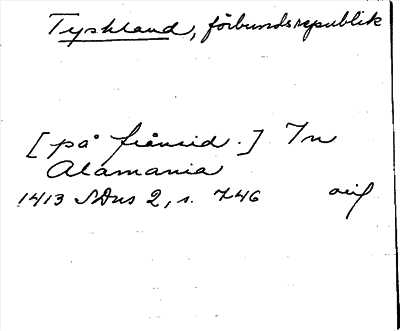 Tyskland, förbundsrepublik
[på frånsid.] In
Alamania
1413 SDns 2, s. 746